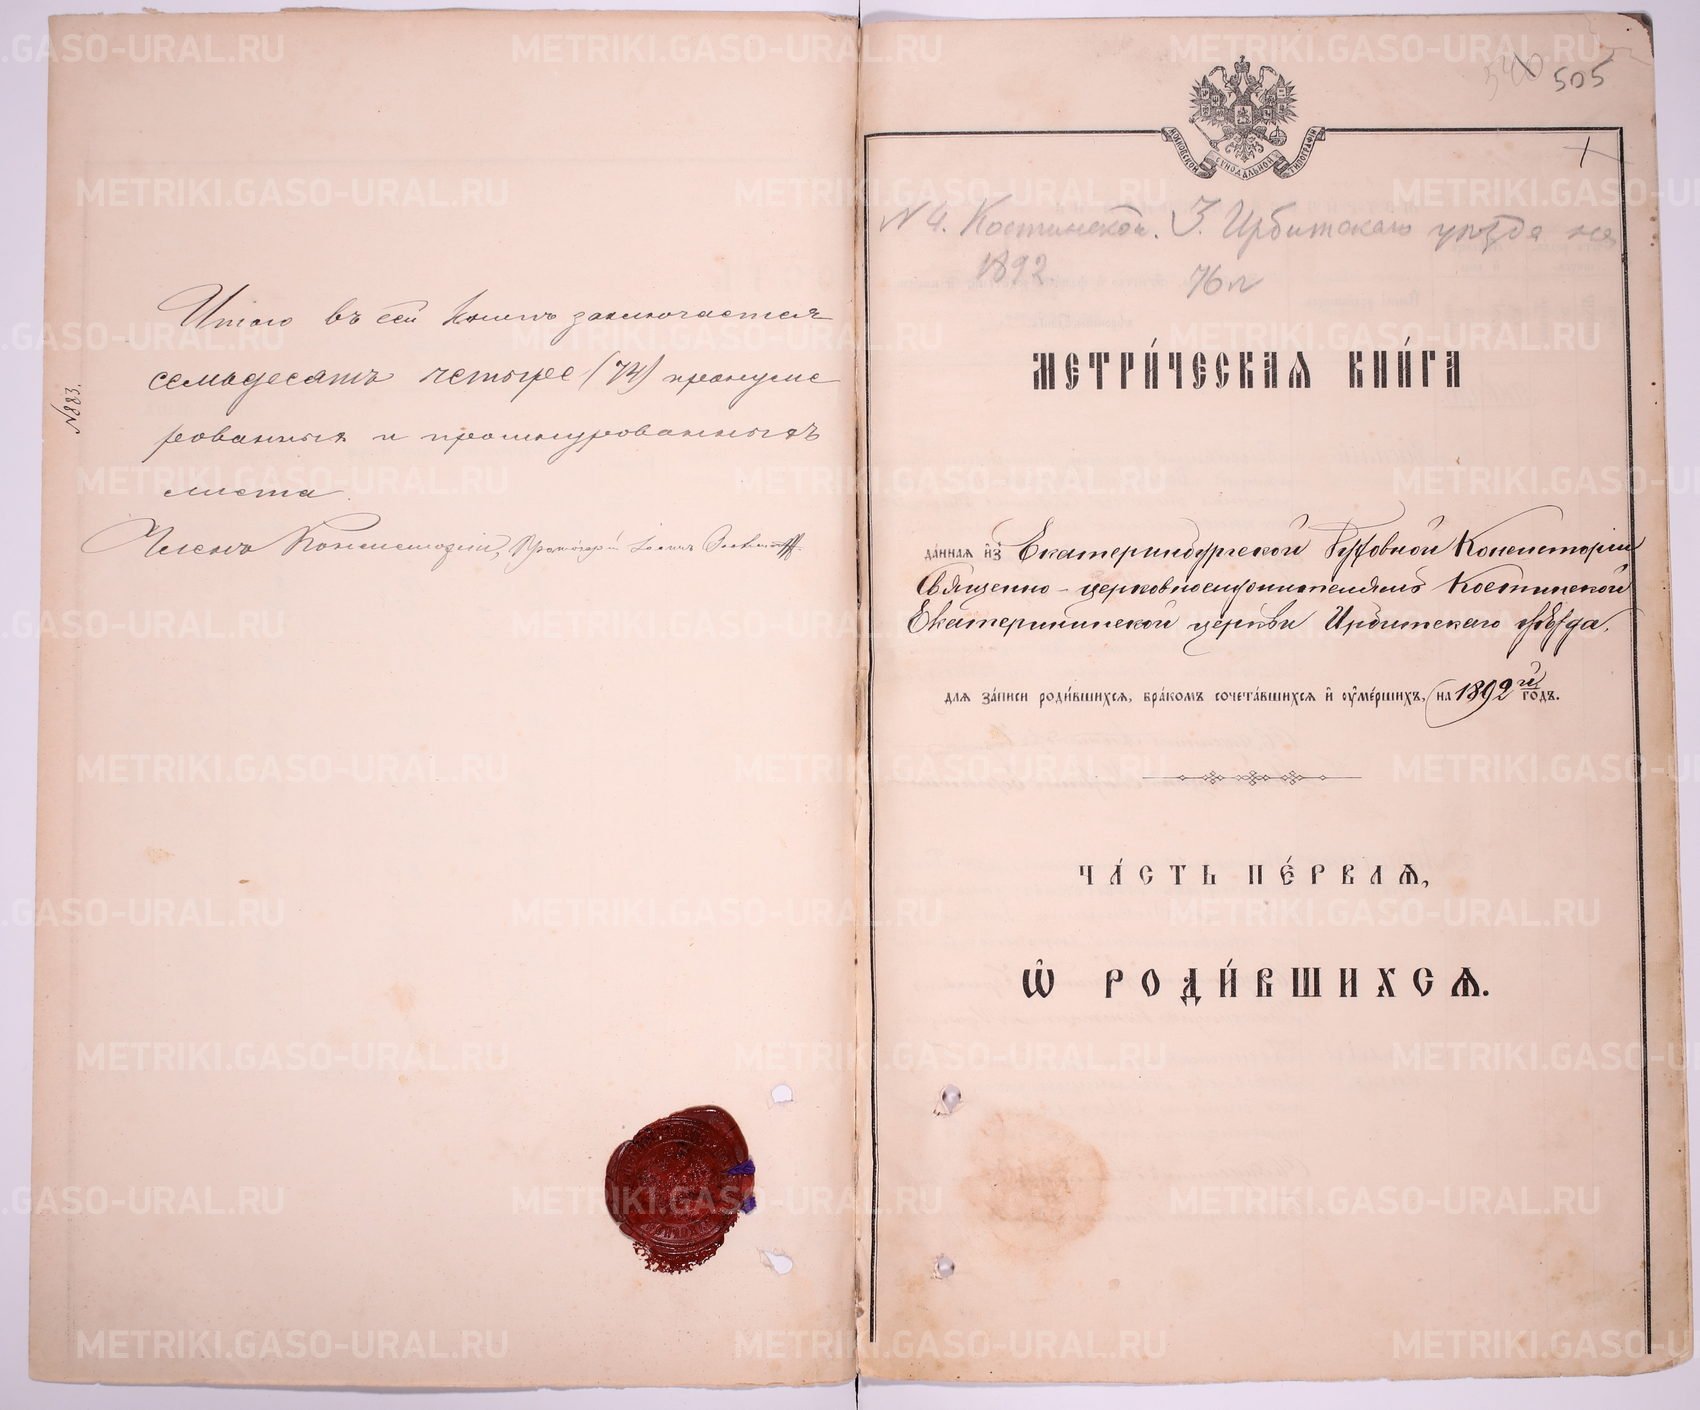 №883.
Итого въ сей книгѣ заключается
семьдесятъ четыре (74) пронуме
рованныхъ и прошнурованныхъ
листа
Членъ Консисторіи, Протоіерей Іоаннъ
540 505
МОСКОВСКОЙ СѴНОДАЛЬНОЙ ТИПОГРАФІИ
1
N 4. Костинской. З. Ирбитскаго уѣзда на
1892 76 л
МЕТРИ́ЧЕСКАѦ КНИ́ГА
да́нная и҆з̾ Екатеринбургской Духовной Консисторіи
Священно-церковнослужителямъ Костинской
Екатерининской церкви Ирбитскаго уѣзда,
для за́писи роди́вшихся, бра́комъ сочета́вшихся и҆ ᲂу҆ме́ршихъ, на 1892й го́дъ.
ЧА́СТЬ ПЕ́РВАѦ,
Ѡ҆ РОДИ́ВШИХСѦ.
METRIKI.GASO-URAL.RU